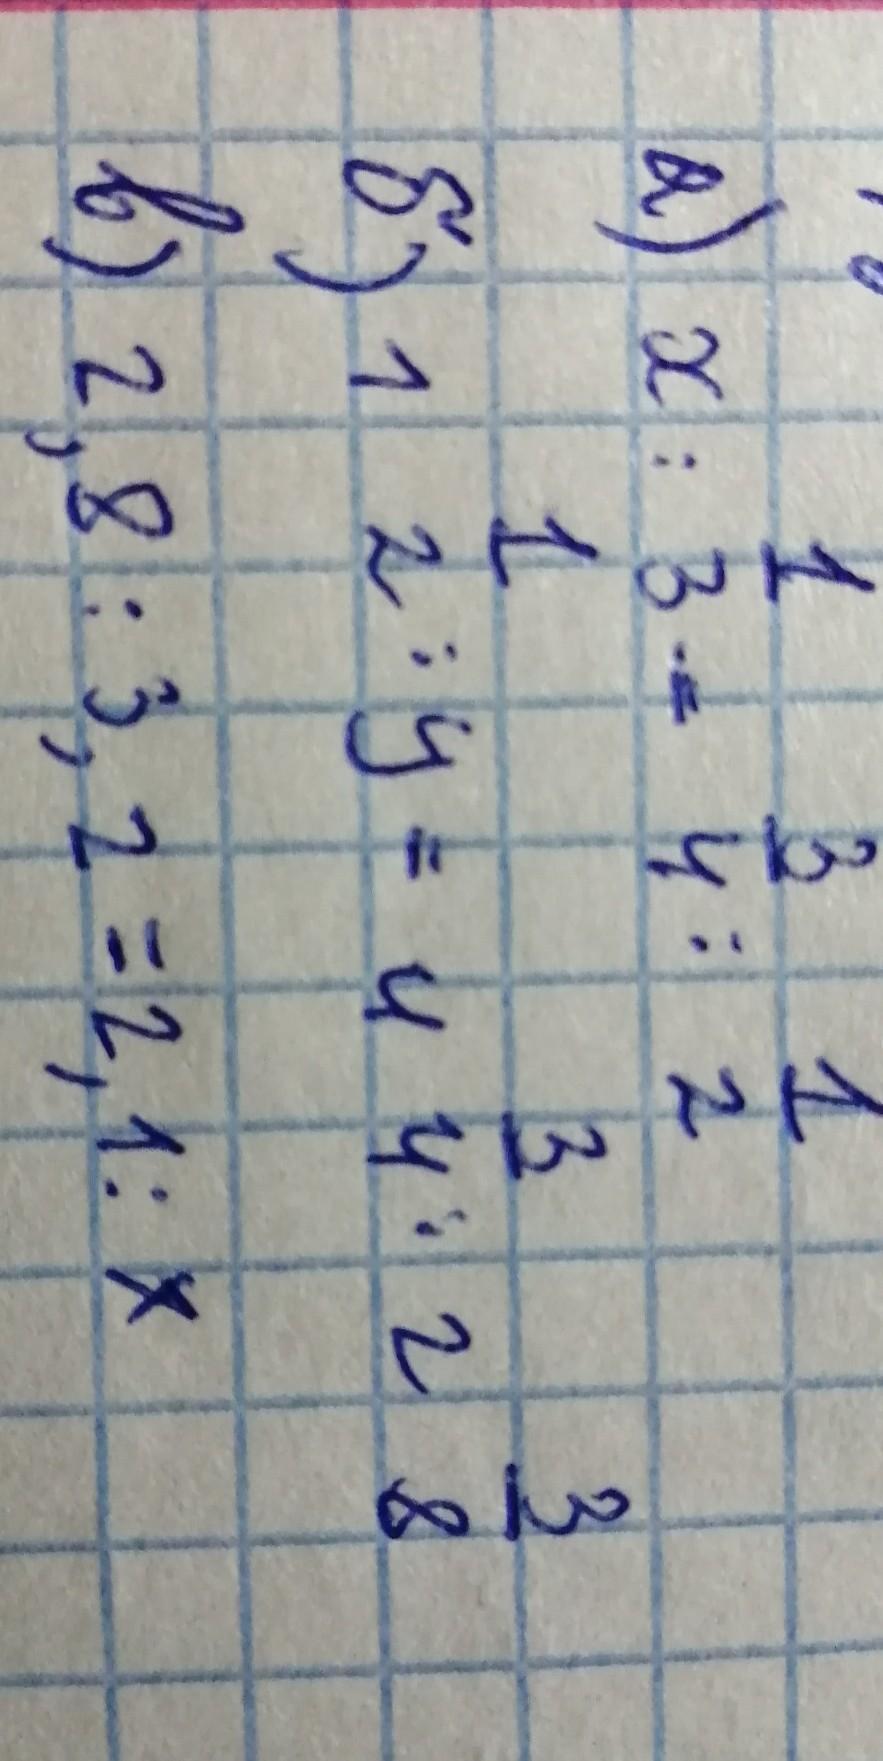 а) x : 1/3 = 3/4 : 1/2
б) 1 1/2 : y = 4 3/4 : 2 3/8
в) 2,8 : 3,2 = 2,1 : x